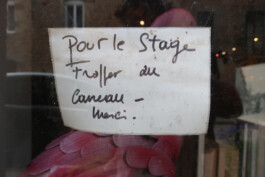 Pour le Stage
frapper au
carreau -
Merci.